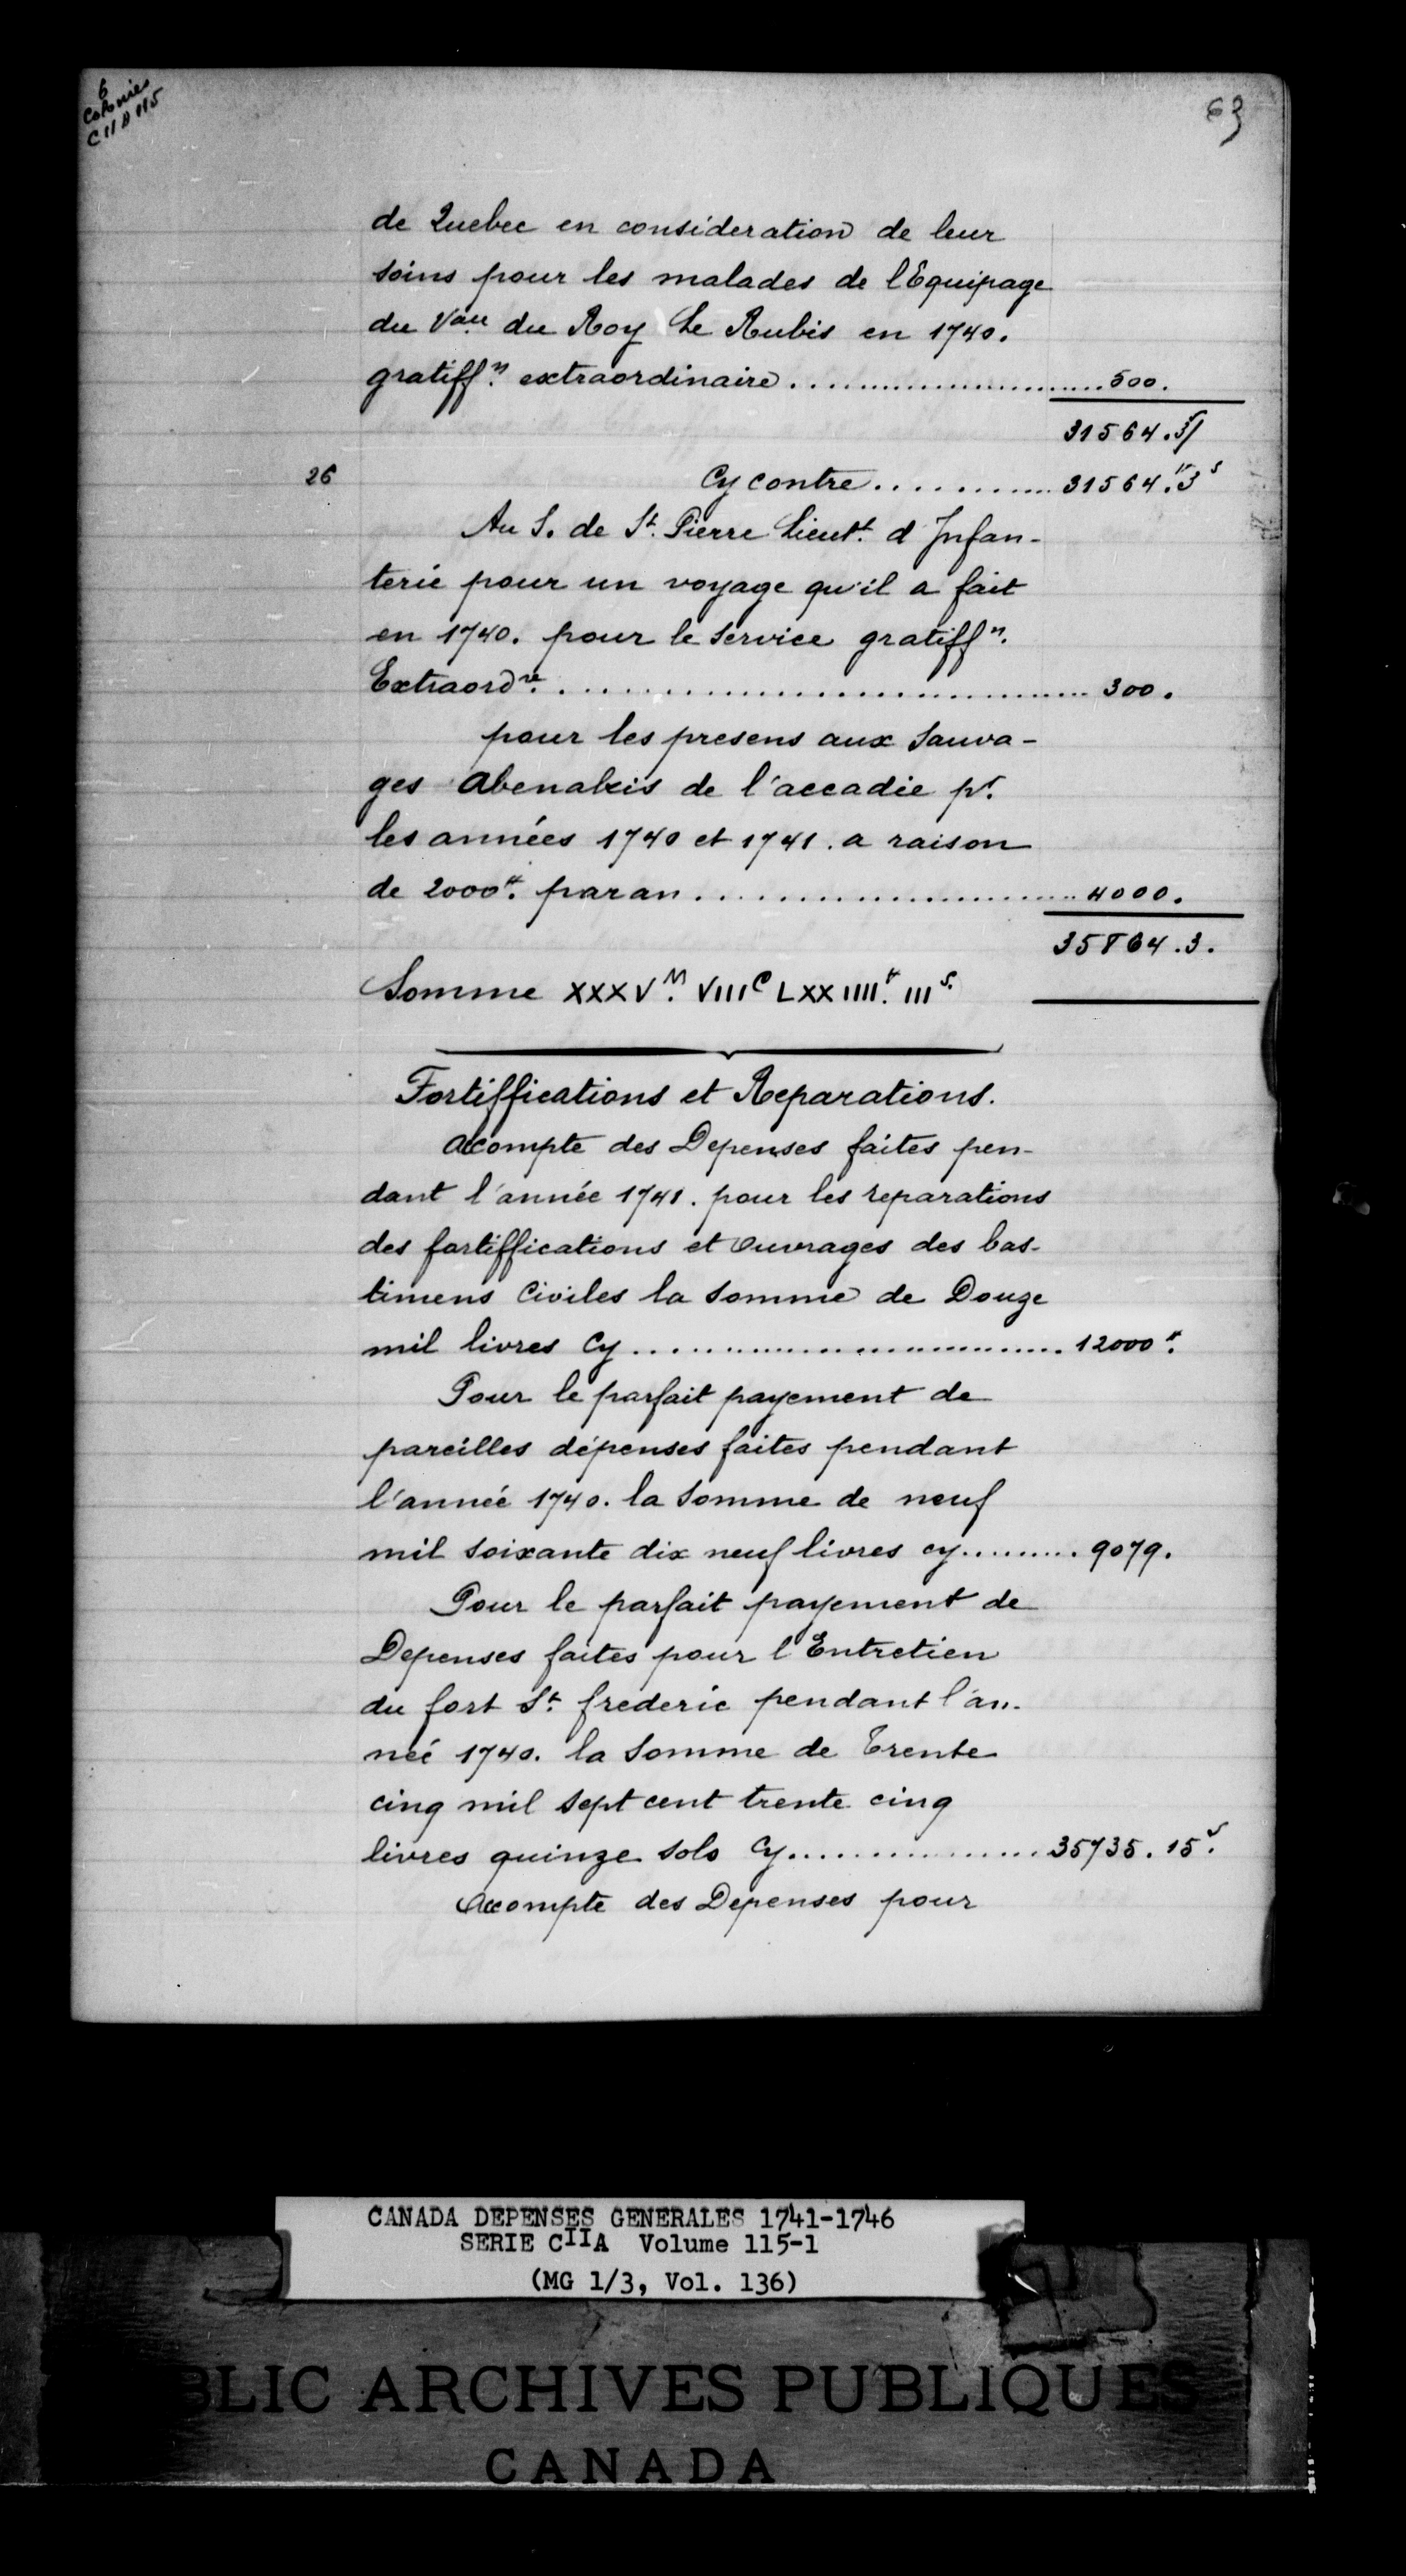 6
Colonies
C 11 A 115
63
de Quebec en consideration de leur
soins pour les malades de l'Equipage
du Vau du Roy Le Rubis en 1740.
gratiffn. extraordinaire........................500.
31564.3s
26 Cy contre............31564.tt3s
Au S. de St. Pierre Lieutt. d'Infan-
terie pour un voyage qu'il a fait
en 1740. pour le service gratiffn.
Extraordre................................300.
pour les presens aux Sauva-
ges Abenakis de l'accadie pr.
les années 1740 et 1741. a raison
de 2000tt. par an......................4000.
35864.3.
Somme XXXVM. VIIIC LXXIIIItt. IIIs.
Fortiffications et Reparations.
Acompte des Depenses faites pen-
dant l'année 1741. pour les reparations
des fortiffications et Ouvrages des bas-
timens Civiles la Somme de Douze
mil livres Cy..............................12000tt.
Pour le parfait payement de
pareilles dépenses faites pendant
l'année 1740. la Somme de neuf
mil soixante dix neuf livres cy.........9079.
Pour le parfait payement de
Depenses faites pour l'Entretien
du fort St. frederic pendant l'an-
neé 1740. la Somme de Trente
cinq mil sept cent trente cinq
livres quinze sols Cy.................35735. 15s.
Accompte des Depenses pour
CANADA DEPENSES GENERALES 1741-1746
SERIE CIIA Volume 115-1
(MG 1/3, Vol. 136)
BLIC ARCHIVES PUBLIQUES
CANADA